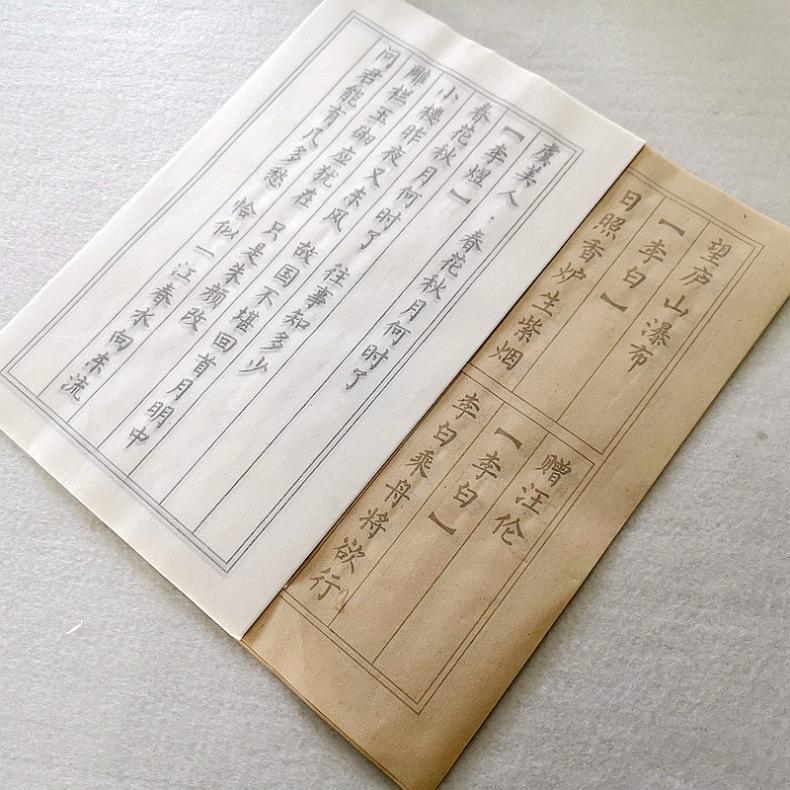 虞美人·春花秋月何时了
【李煜】
春花秋月何时了 往事知多少
小楼昨夜又东风 故国不堪回首月明中
雕栏玉砌应犹在 只是朱颜改
问君能有几多愁 恰似一江春水向东流
望庐山瀑布
【李白】
日照香炉生紫烟
赠汪伦
【李白】
李白乘舟将欲行